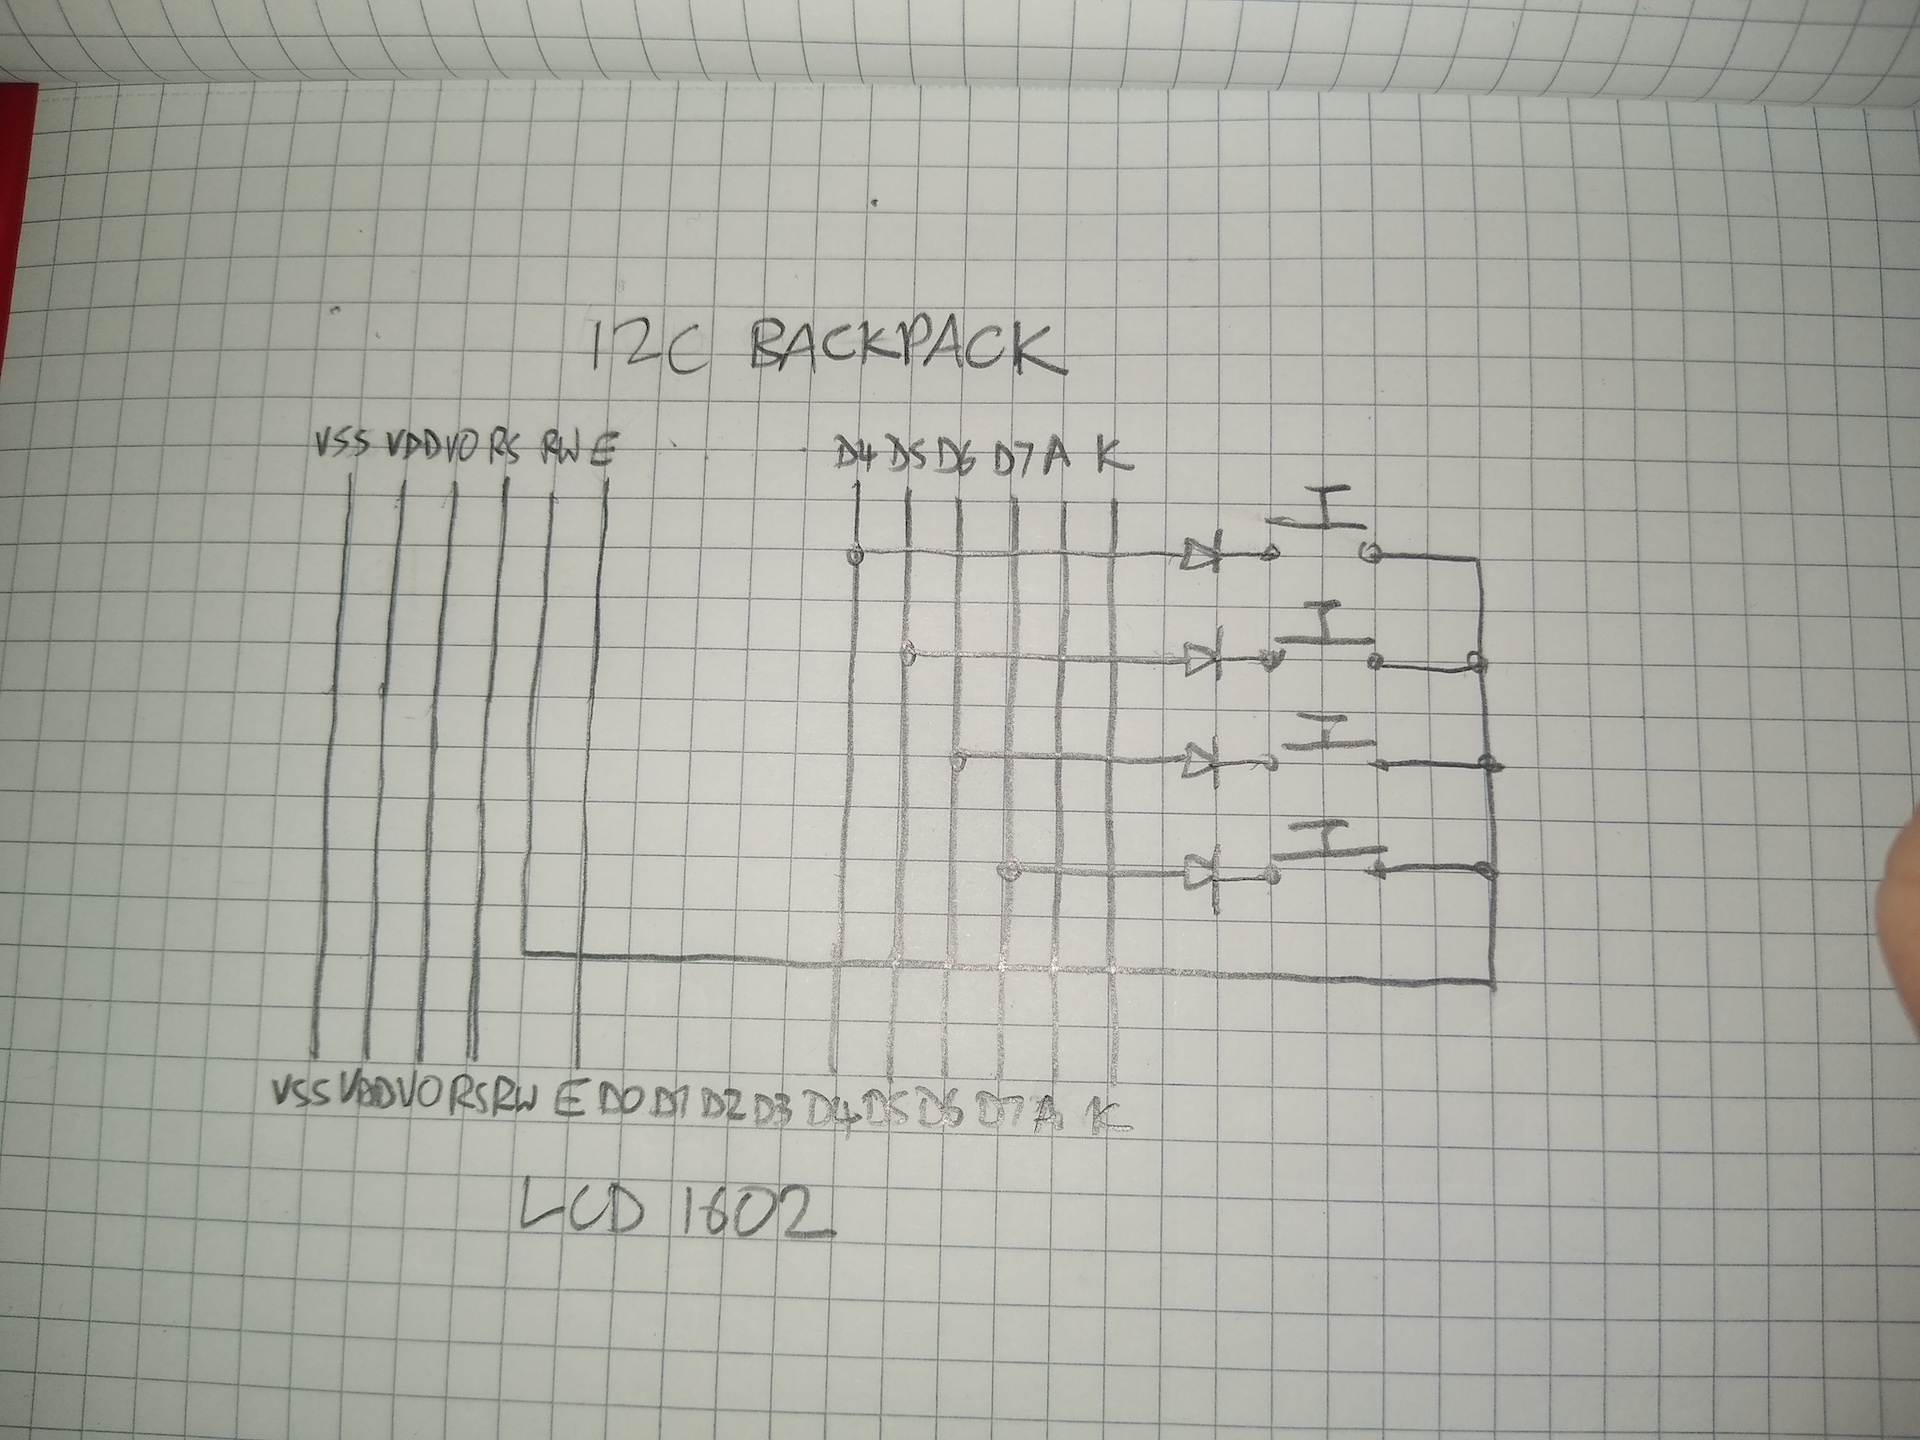 I2C BACKPACK
VSS VDD VO RS RW E D4 D5 D6 D7 A K
VSS VDD VO RS RW E D0 D1 D2 D3 D4 D5 D6 D7 A K
LCD 1602